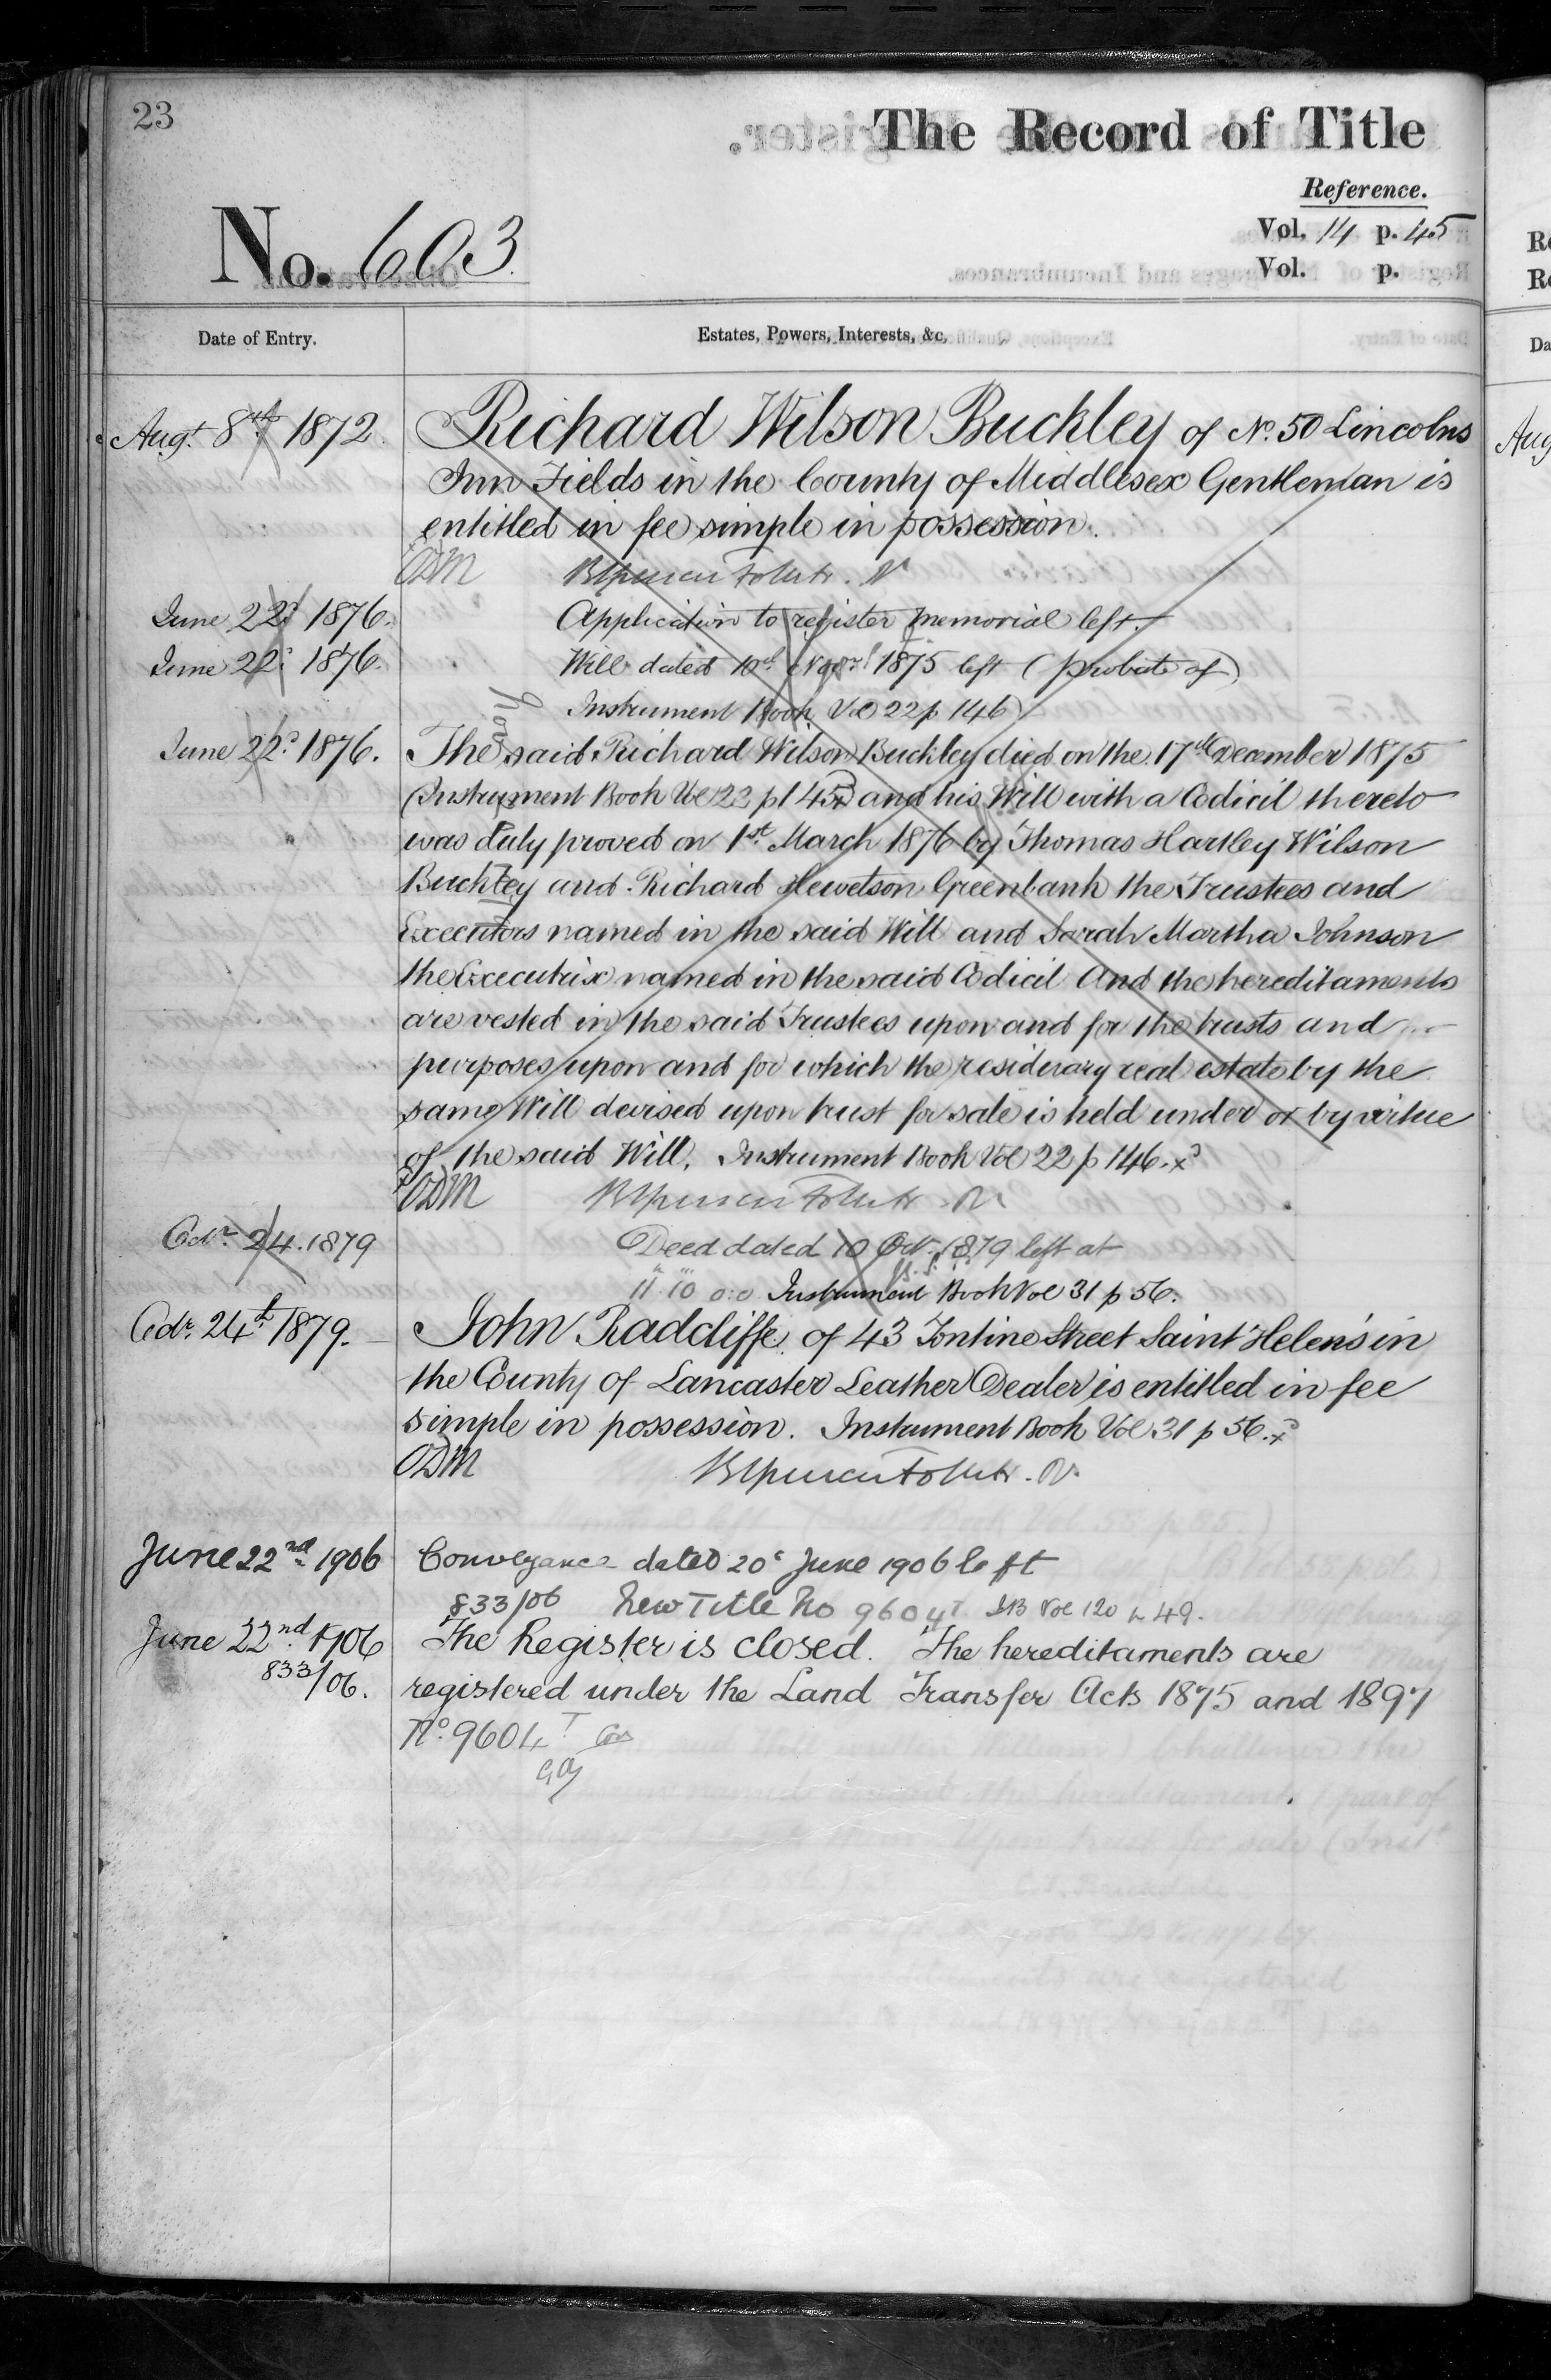 23
The Record of Title
Reference.
No. 603.
Vol. 14 p. 45
Vol. p.
Date of Entry.
Estates, Powers, Interests, &c.
Augt. 8th 1872.
Richard Wilson Buckley of No. 50 Lincolns
Inn Fields in the County of Middlesex Gentleman is
entitled in fee simple in possession.
June 22d 1876.
Application to register memorial left.
June 22d 1876.
Will dated 10th Novr. 1875 left (probate of)
Instrument Book Vol 22 p 146)
June 22d 1876.
The said Richard Wilson Buckley died on the 17th December 1875
(Instrument Book Vol 23 p 145) and his Will with a Codicil thereto
was duly proved on 1st March 1876 by Thomas Hartley Wilson
Buckley and Richard Hewetson Greenbank the Trustees and
Executors named in the said Will and Sarah Martha Johnson
the Executrix named in the said Codicil And the hereditaments
are vested in the said Trustees upon and for the trusts and
purposes upon and for which the residuary real estate by the
same Will devised upon trust for sale is held under or by virtue
of the said Will. Instrument Book Vol 22 p 146.
Octr. 24. 1879
Deed dated 10 Oct. 1879 left at
11.10 Instrument Book Vol 31 p 56.
Octr. 24th 1879.
John Radcliffe of 43 Tontine Street Saint Helen's in
the County of Lancaster Leather Dealer is entitled in fee
simple in possession. Instrument Book Vol 31 p 56.
June 22nd 1906
Conveyance dated 20 June 1906 left
833/06 New Title No 9604T IB Vol 120 p 49.
June 22nd 1906
The Register is closed. The hereditaments are
833/06.
registered under the Land Transfer Acts 1875 and 1897
No. 9604T